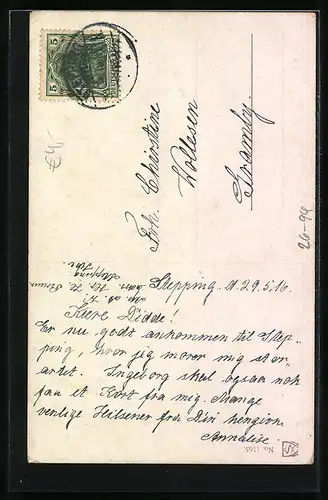 5 5
€4,-
Frk. Christine
Wollesen
Gramby.
20-94
Stepping
Stepping d. 29.5.16.
Kære Didde!
Er nu godt ankommen til Step-
ping, hvor jeg morer mig stor-
artet. Ingeborg skal ogsaa nok
faa et Kort fra mig. Mange
venlige Hilsener fra Din hengivne
Annalise.
No. 1165.